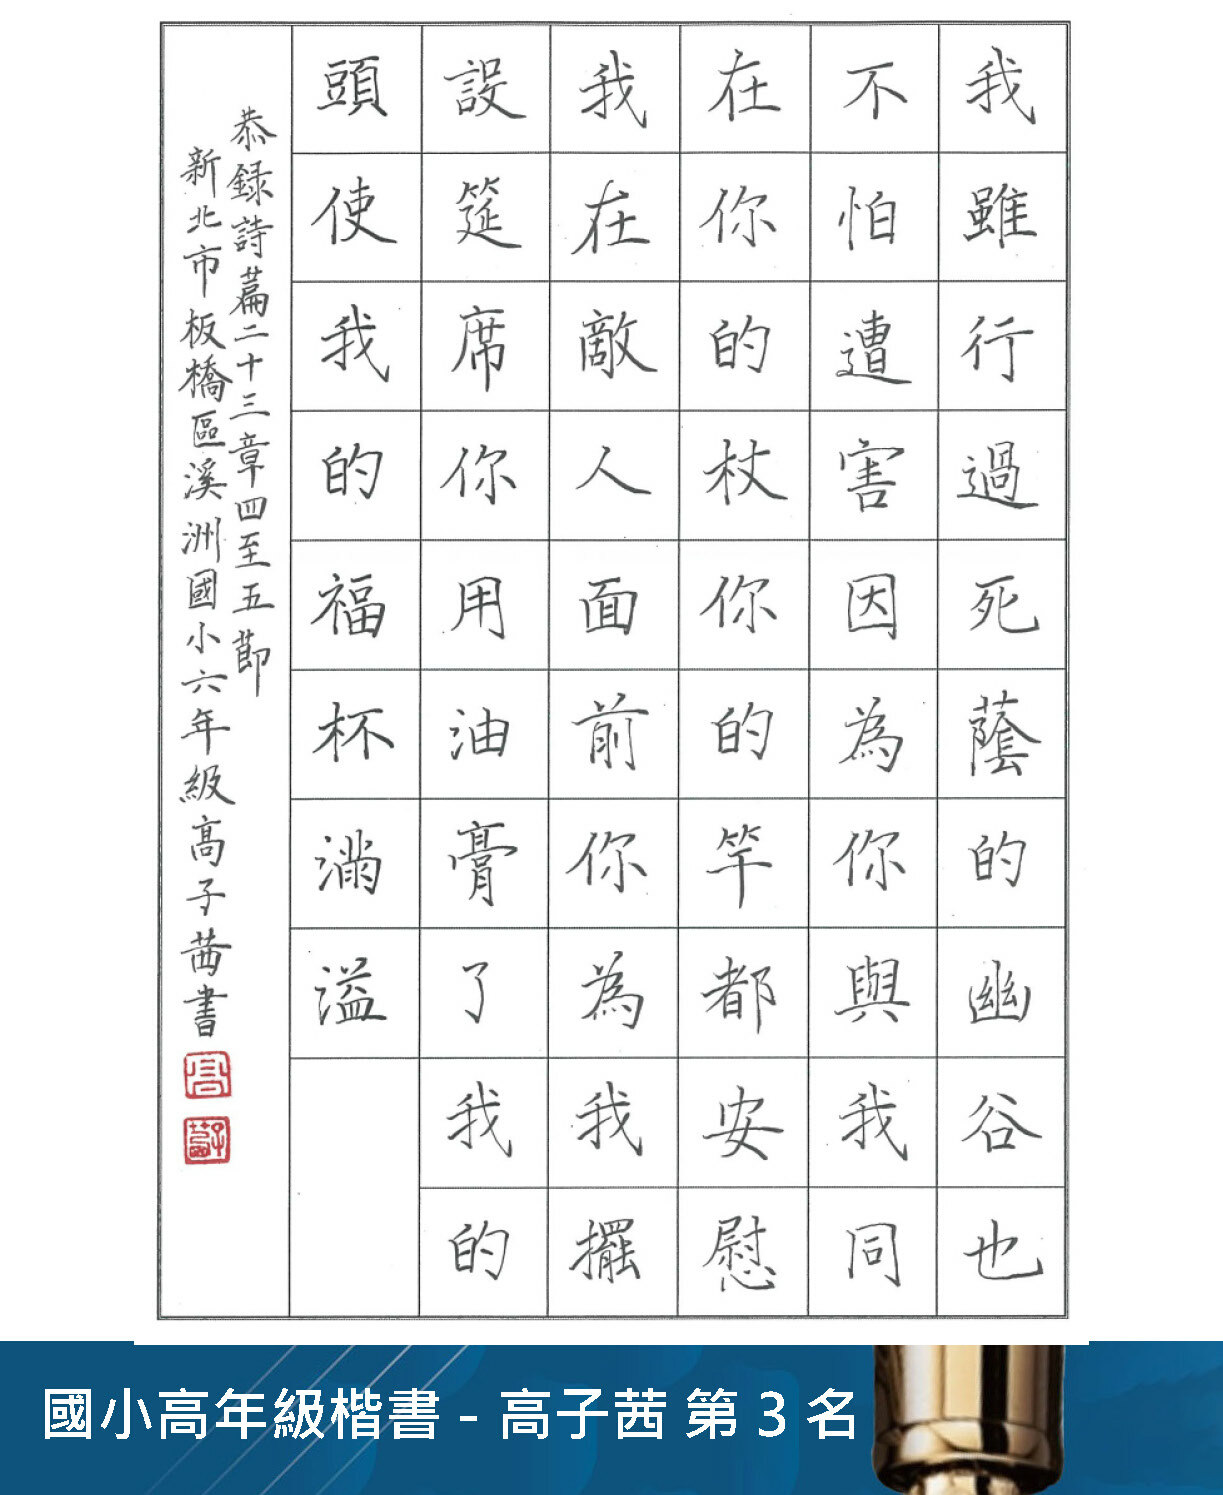 我雖行過死蔭的幽谷也
不怕遭害因為你與我同
在你的杖你的竿都安慰
我在敵人面前你為我擺
設筵席你用油膏了我的
頭使我的福杯滿溢
恭録詩篇二十三章四至五節
新北市板橋區溪洲國小六年級高子茜書
國小高年級楷書 - 高子茜 第 3 名